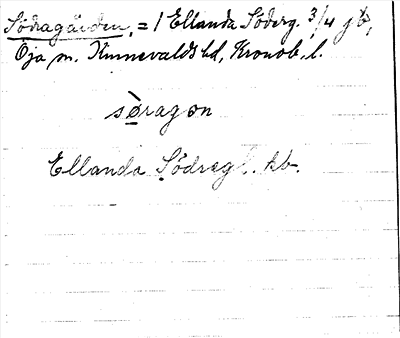 Södragården, = 1 Ellanda Söderg. 3/4 jb,
Öja sn. Kinnevalds hd, Kronob. l.
sø̀ragon
Ellanda Södreg. kb.